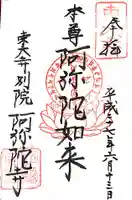 奉拝
平成二十七年六月十三日
本尊阿弥陀如来
東大寺別院
阿弥陀寺